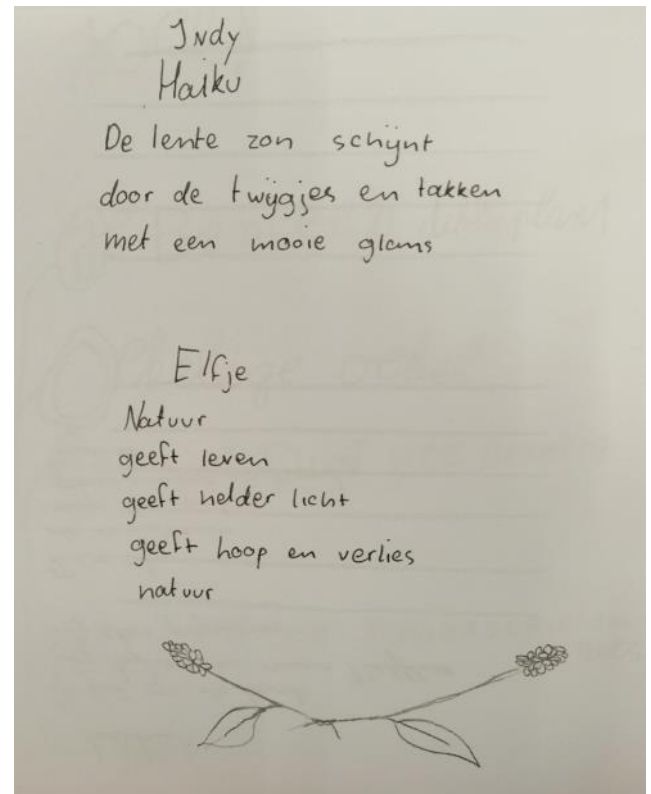 Indy
Haiku
De lente zon schijnt
door de twijgjes en takken
met een mooie glans
Elfje
Natuur
geeft leven
geeft helder licht
geeft hoop en verlies
natuur